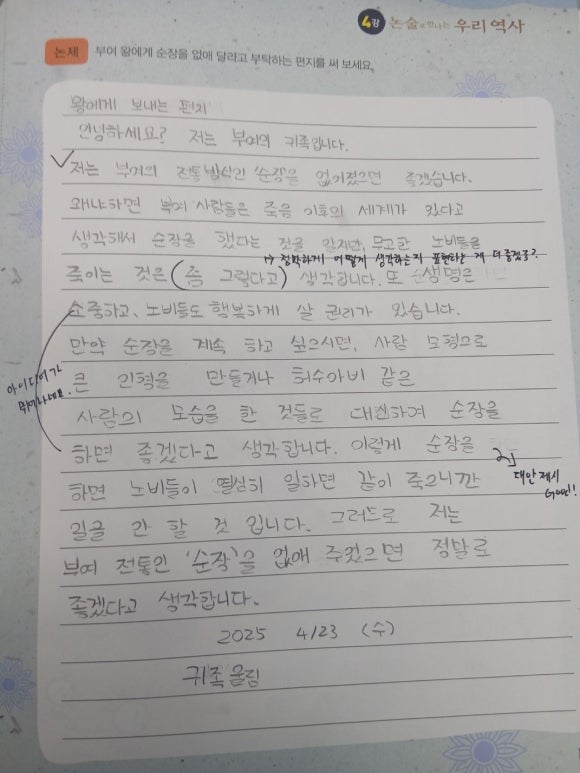 4강 논술로 만나는 우리 역사
논제 부여 왕에게 순장을 없애 달라고 부탁하는 편지를 써 보세요.
왕에게 보내는 편지
안녕하세요? 저는 부여의 귀족입니다.
저는 부여의 전통방식인 '순장'을 없어졌으면 좋겠습니다.
왜냐하면 부여 사람들은 죽음 이후의 세계가 있다고
생각해서 순장을 했다는 것을 알지만, 무고한 노비들을
↳ 정확하게 어떻게 생각하는지 표현하는 게 더 좋겠죠?
죽이는 것은 (좀 그렇다고) 생각합니다. 또 생명은
소중하고, 노비들도 행복하게 살 권리가 있습니다.
만약 순장을 계속 하고 싶으시면, 사람 모형으로
아이디어가
뛰어나네요.
큰 인형을 만들거나 허수아비 같은
사람의 모습을 한 것들로 대신하여 순장을
하면 좋겠다고 생각합니다. 이렇게 순장을
대안 제시
Good!!
하면 노비들이 열심히 일하면 같이 죽으니깐
일을 안 할 것 입니다. 그러므로 저는
부여 전통인 '순장'을 없애 주셨으면 정말로
좋겠다고 생각합니다.
2025 4/23 (수)
귀족 올림